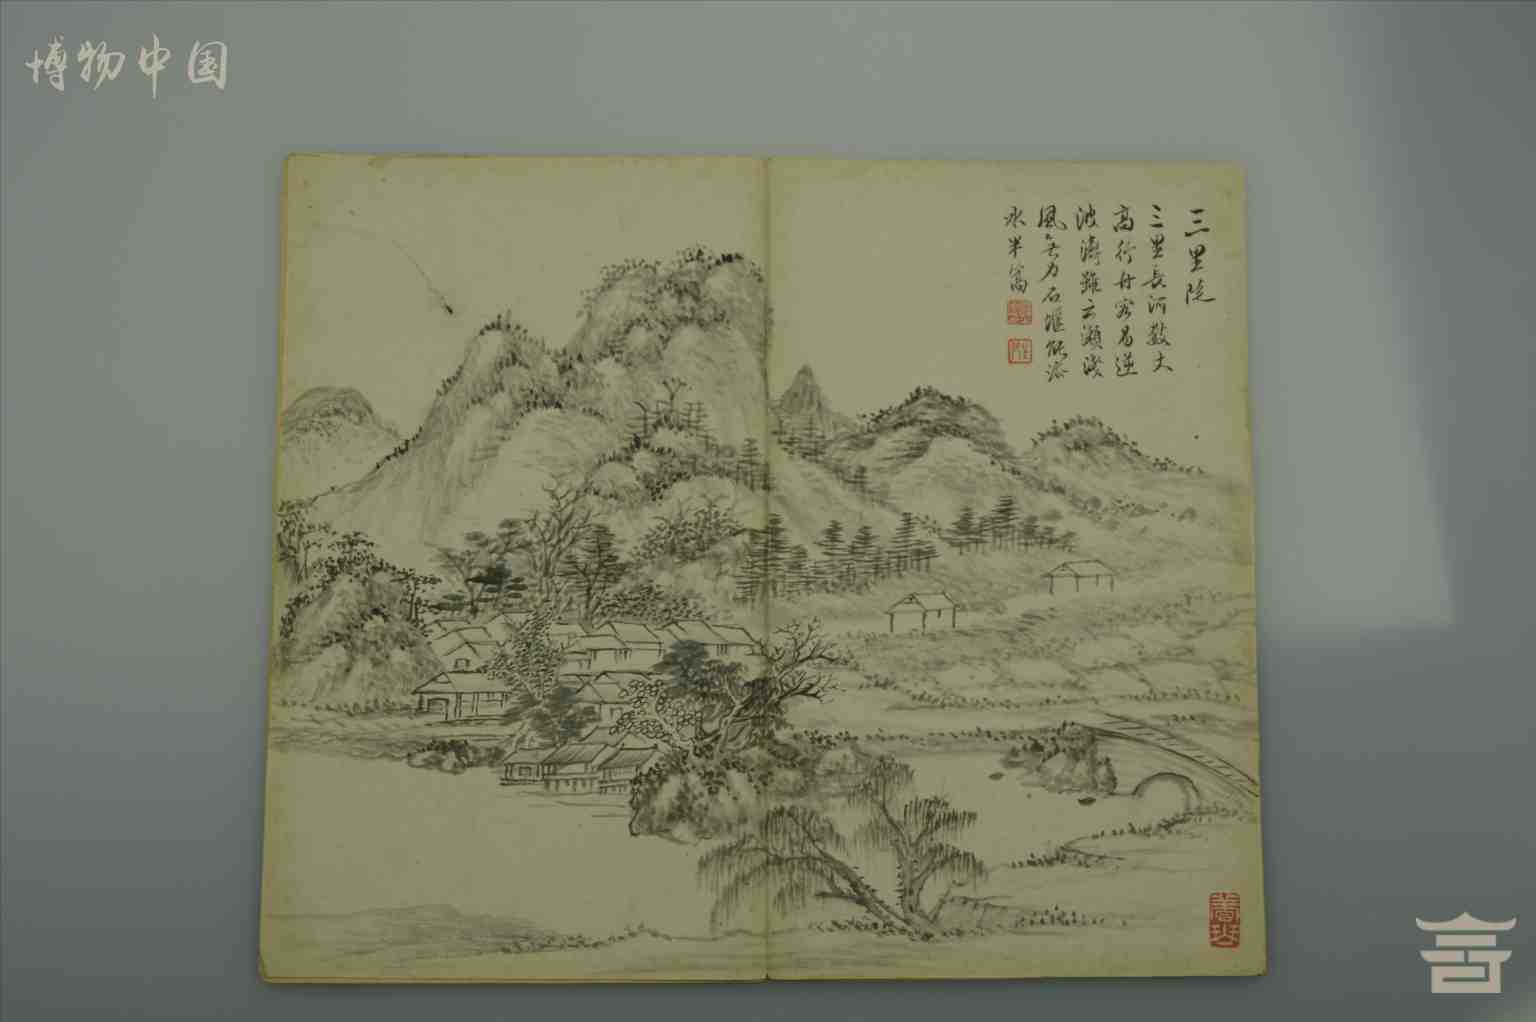 博物中国
三里院
三里長河数丈
高行舟容易逆
波濤雖云瀬淺
風無力石堰能添
水半篙